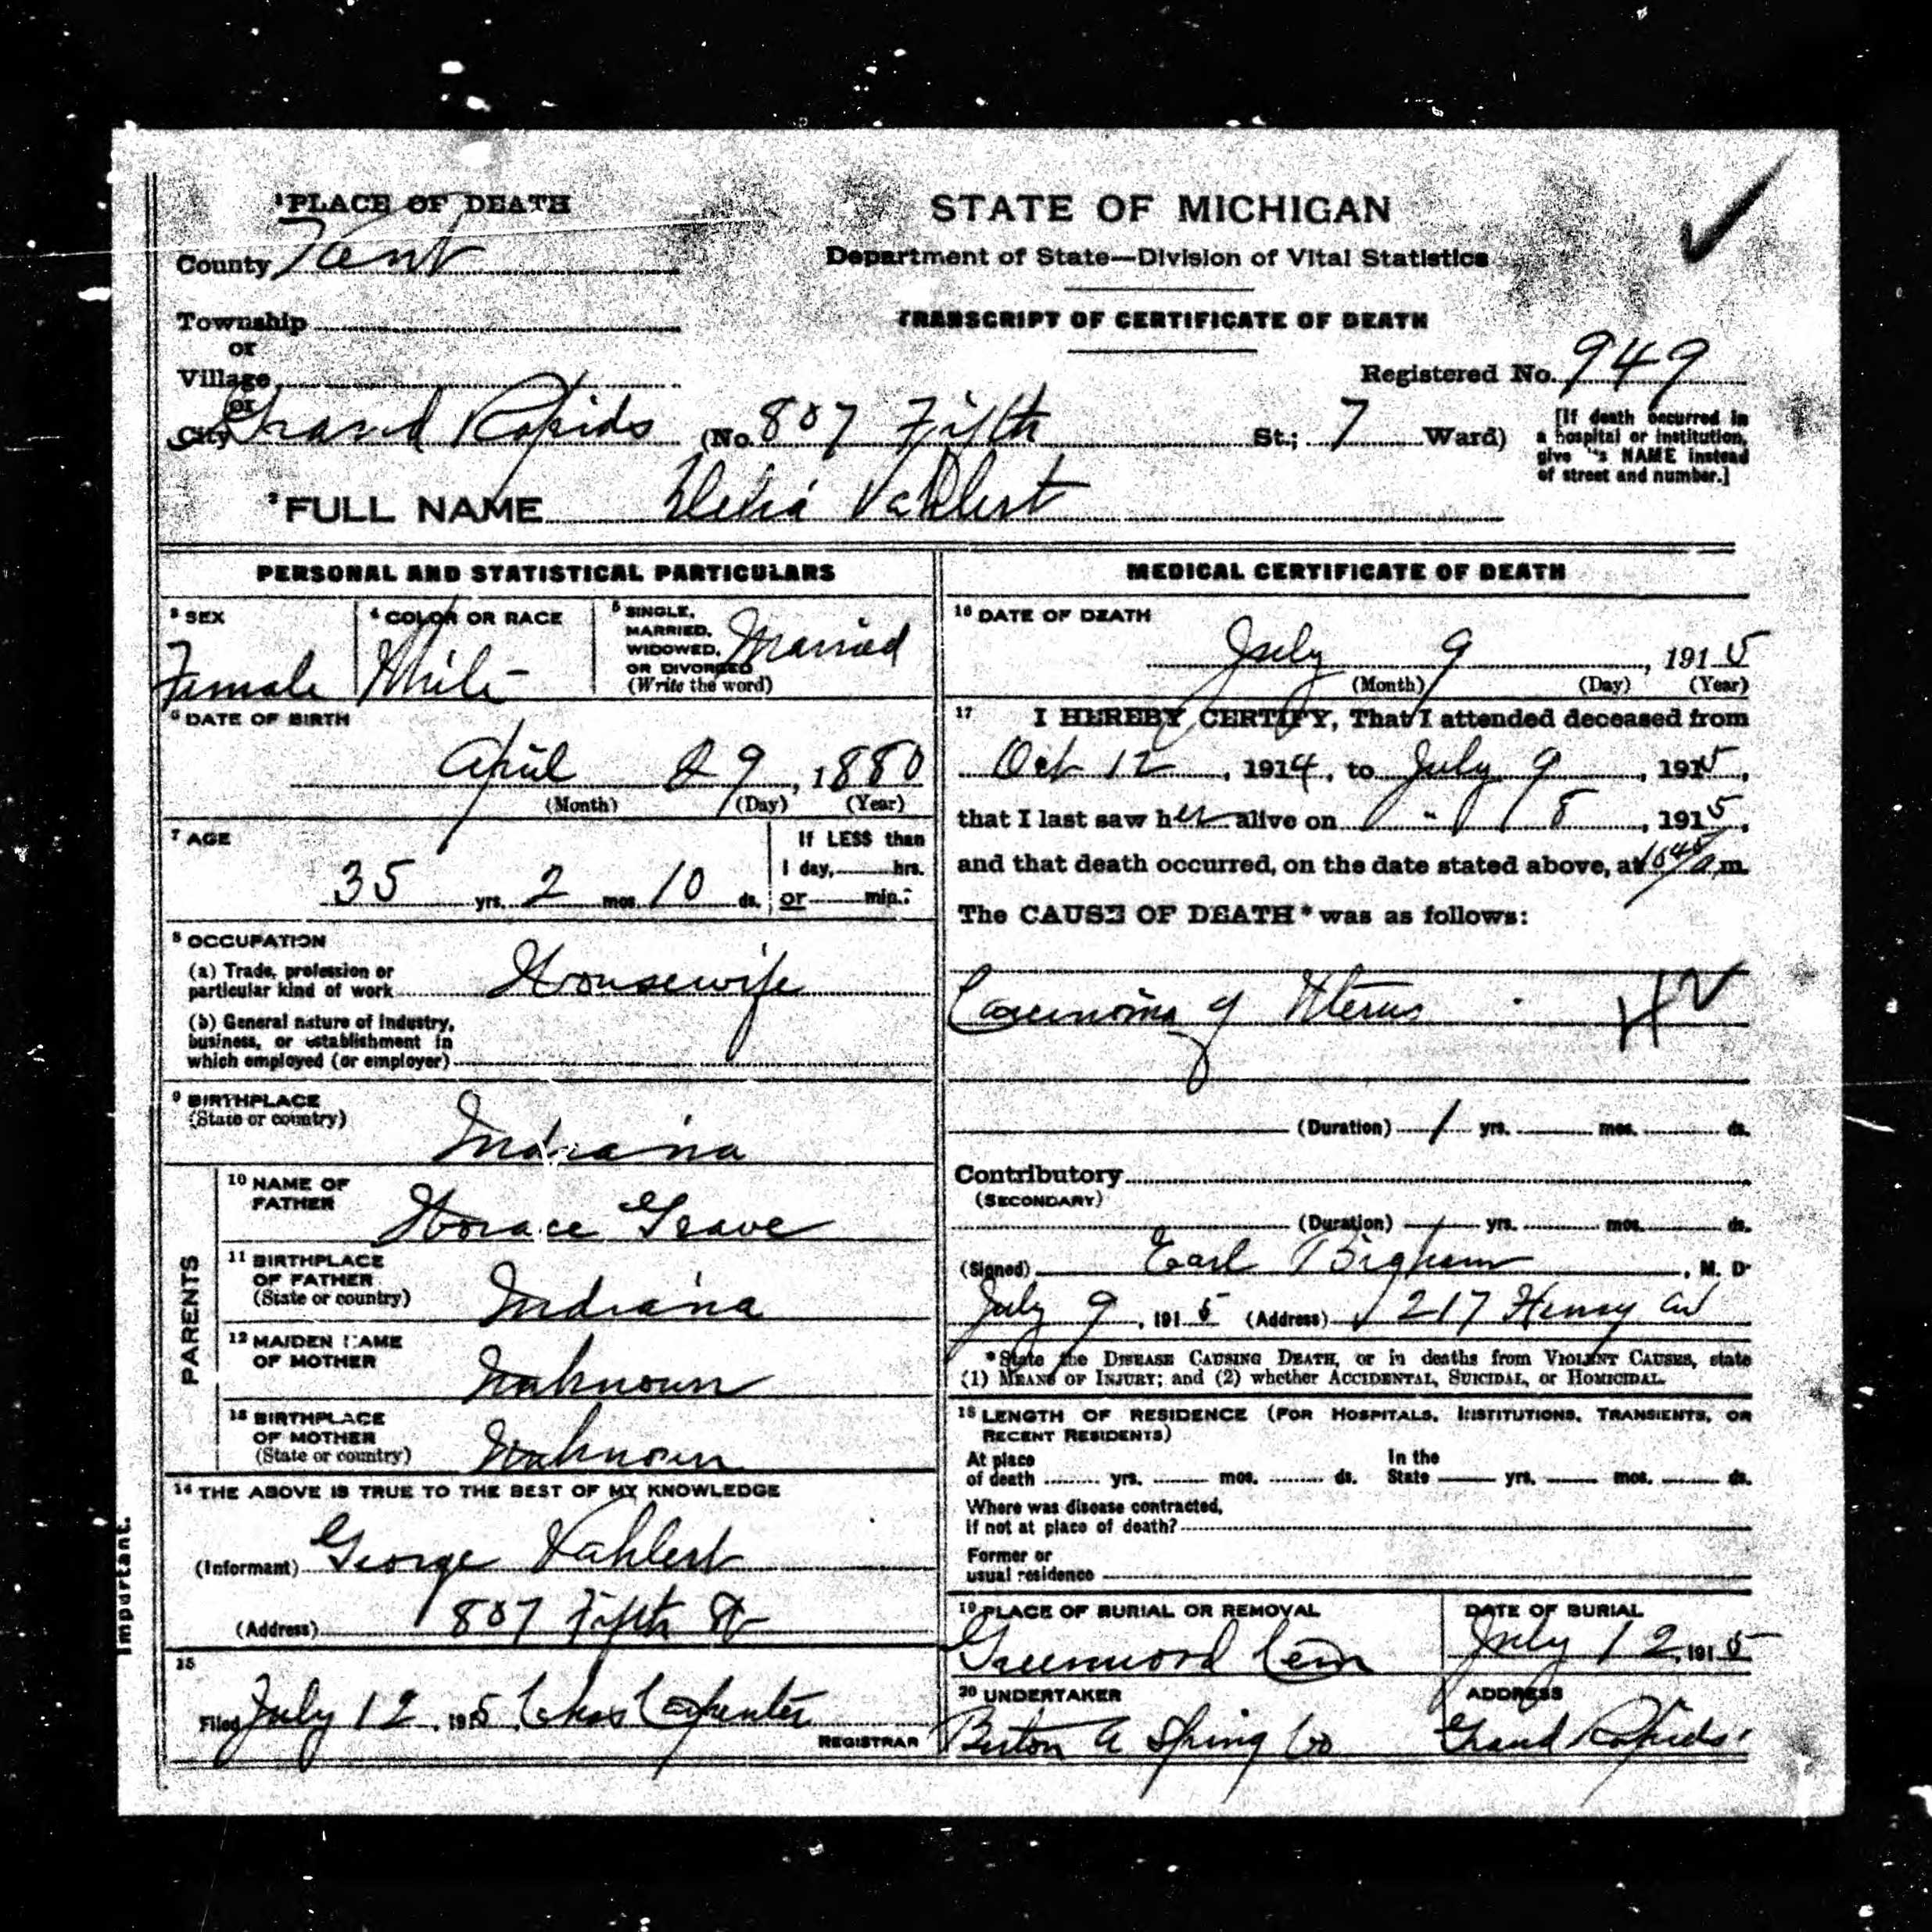 ¹PLACE OF DEATH
County Kent
Township
or
Village
or
City Grand Rapids (No. 807 Fifth St.; 7 Ward)
STATE OF MICHIGAN
Department of State—Division of Vital Statistics
TRANSCRIPT OF CERTIFICATE OF DEATH
Registered No. 949
[If death occurred in
a hospital or institution,
give its NAME instead
of street and number.]
²FULL NAME Vahlert
PERSONAL AND STATISTICAL PARTICULARS
³ SEX
Female
⁴ COLOR OR RACE
White
⁵ SINGLE,
MARRIED,
WIDOWED,
OR DIVORCED
(Write the word)
Married
⁶ DATE OF BIRTH
April 29, 1880
(Month) (Day) (Year)
⁷ AGE
35 yrs. 2 mos. 10 ds.
If LESS than
1 day, hrs.
or min.:
⁸ OCCUPATION
(a) Trade, profession or
particular kind of work Housewife
(b) General nature of industry,
business, or establishment in
which employed (or employer)
⁹ BIRTHPLACE
(State or country)
Indiana
PARENTS
¹⁰ NAME OF
FATHER
Horace Grave
¹¹ BIRTHPLACE
OF FATHER
(State or country)
Indiana
¹² MAIDEN NAME
OF MOTHER
Unknown
¹³ BIRTHPLACE
OF MOTHER
(State or country)
Unknown
¹⁴ THE ABOVE IS TRUE TO THE BEST OF MY KNOWLEDGE
(Informant) George Vahlert
(Address) 807 Fifth St
15
Filed July 12, 1915 Chas Carpenter
REGISTRAR
Important.
MEDICAL CERTIFICATE OF DEATH
¹⁶ DATE OF DEATH
July 9, 1915
(Month) (Day) (Year)
17 I HEREBY CERTIFY, That I attended deceased from
Oct 12, 1914, to July 9, 1915,
that I last saw her alive on " 8, 1915,
and that death occurred, on the date stated above, at m.
The CAUSE OF DEATH* was as follows:
Carcinoma of Uterus
(Duration) 1 yrs. mos. ds.
Contributory
(SECONDARY)
(Duration) yrs. mos. ds.
(Signed) Earl Bigham, M. D.
July 9, 1915 (Address) 217 Henry Av
*State the DISEASE CAUSING DEATH, or in deaths from VIOLENT CAUSES, state
(1) MEANS OF INJURY; and (2) whether ACCIDENTAL, SUICIDAL, or HOMICIDAL.
¹⁸ LENGTH OF RESIDENCE (FOR HOSPITALS, INSTITUTIONS, TRANSIENTS, OR
RECENT RESIDENTS)
At place
of death yrs. mos. ds.
In the
State yrs. mos. ds.
Where was disease contracted,
if not at place of death?
Former or
usual residence
¹⁹ PLACE OF BURIAL OR REMOVAL
Greenwood Cem
DATE OF BURIAL
July 12, 1915
²⁰ UNDERTAKER
Burton A Spring Co
ADDRESS
Grand Rapids.